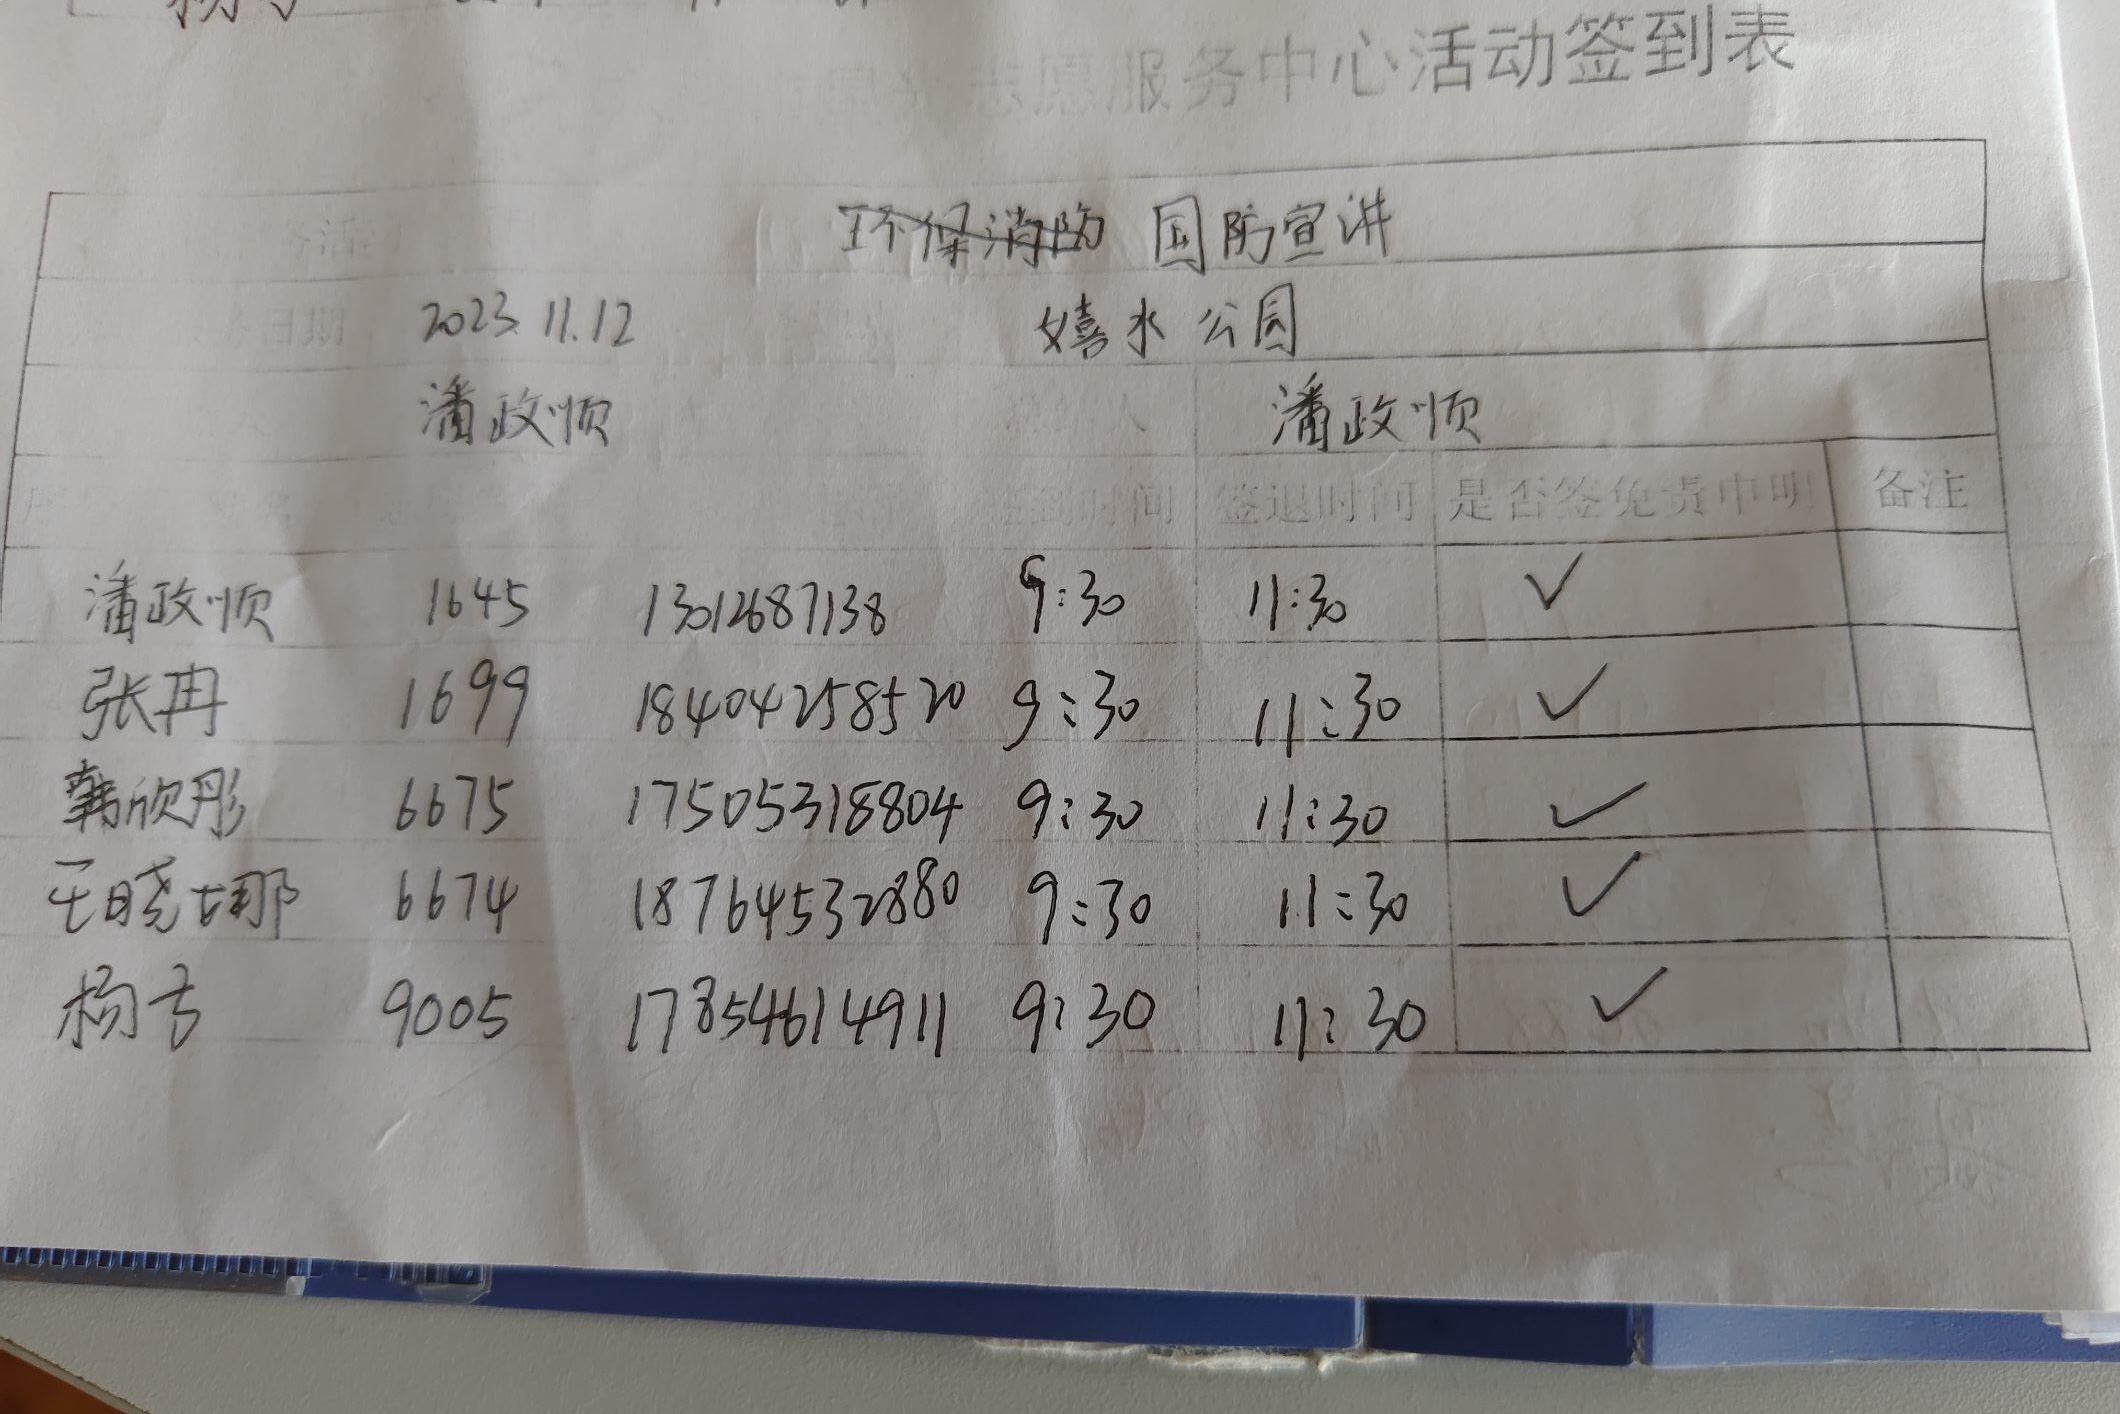 志愿服务中心活动签到表
环保消防 国防宣讲
日期 2023.11.12 嬉水公园
潘政顺 人 潘政顺
签到时间 签退时间 是否签免责申明 备注
潘政顺 1645 13012687138 9:30 11:30 ✓
张冉 1699 18404258520 9:30 11:30 ✓
韩欣彤 6675 17505318804 9:30 11:30 ✓
王晓娜 6674 18764532880 9:30 11:30 ✓
杨方 9005 17854614911 9:30 11:30 ✓